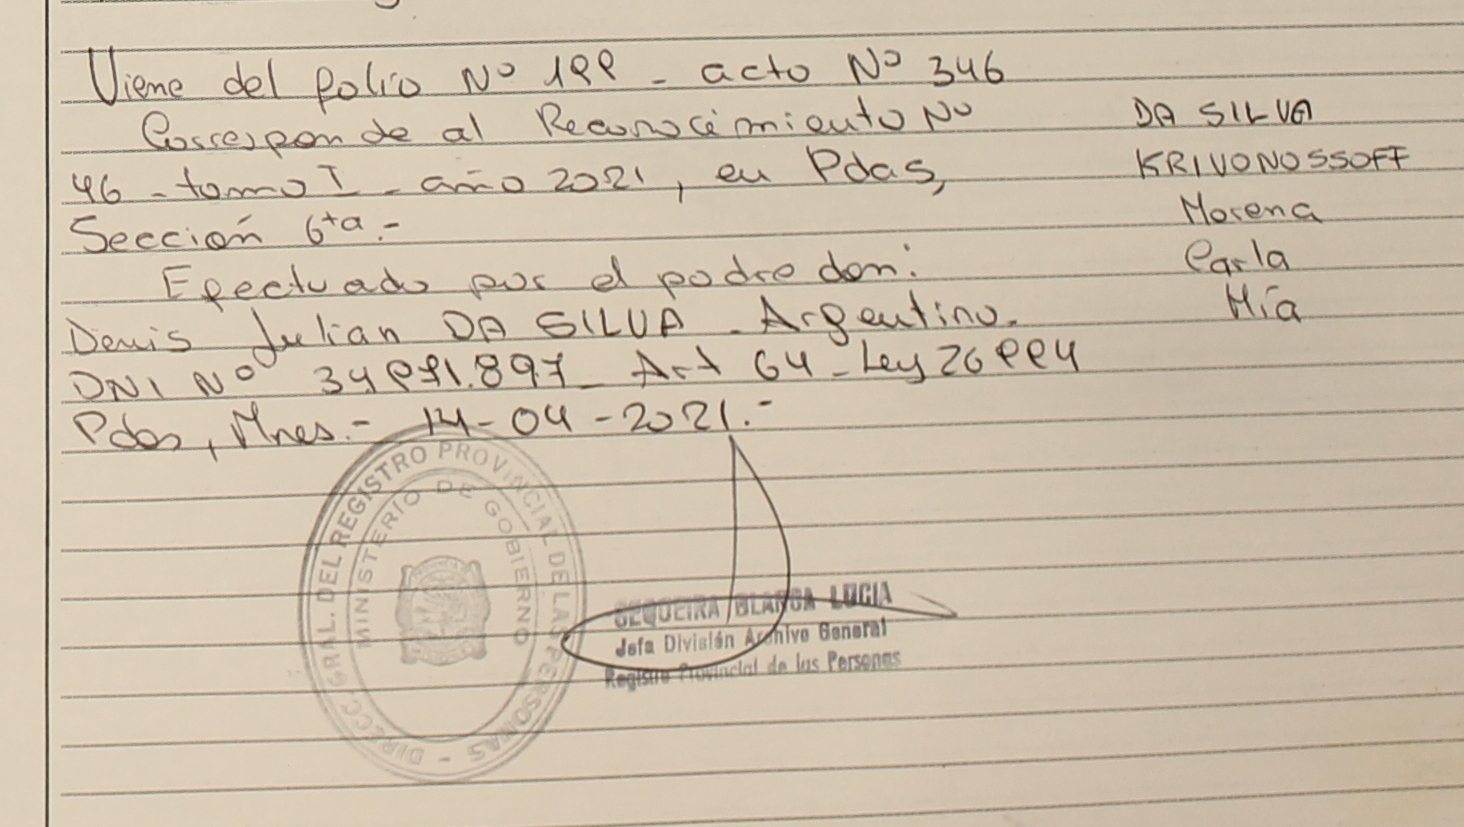 Viene del folio Nº 199 - acta Nº 346
Corresponde al Reconocimiento Nº
46 - tomo I - año 2021, en Pdas,
Sección 6ta.-
Efectuado por el padre don:
Denis Julian DA SILVA - Argentino.
DNI Nº 34.991.897 - Art 64 - Ley 26994
Pdas, Mnes.- 14-04-2021.-
DA SILVA
KRIVONOSSOFF
Morena
Carla
Mía
DIRECC. GRAL. DEL REGISTRO PROVINCIAL DE LAS PERSONAS -
MINISTERIO DE GOBIERNO
SEQUEIRA BLANCA LUCIA
Jefa División Archivo General
Registro Provincial de las Personas